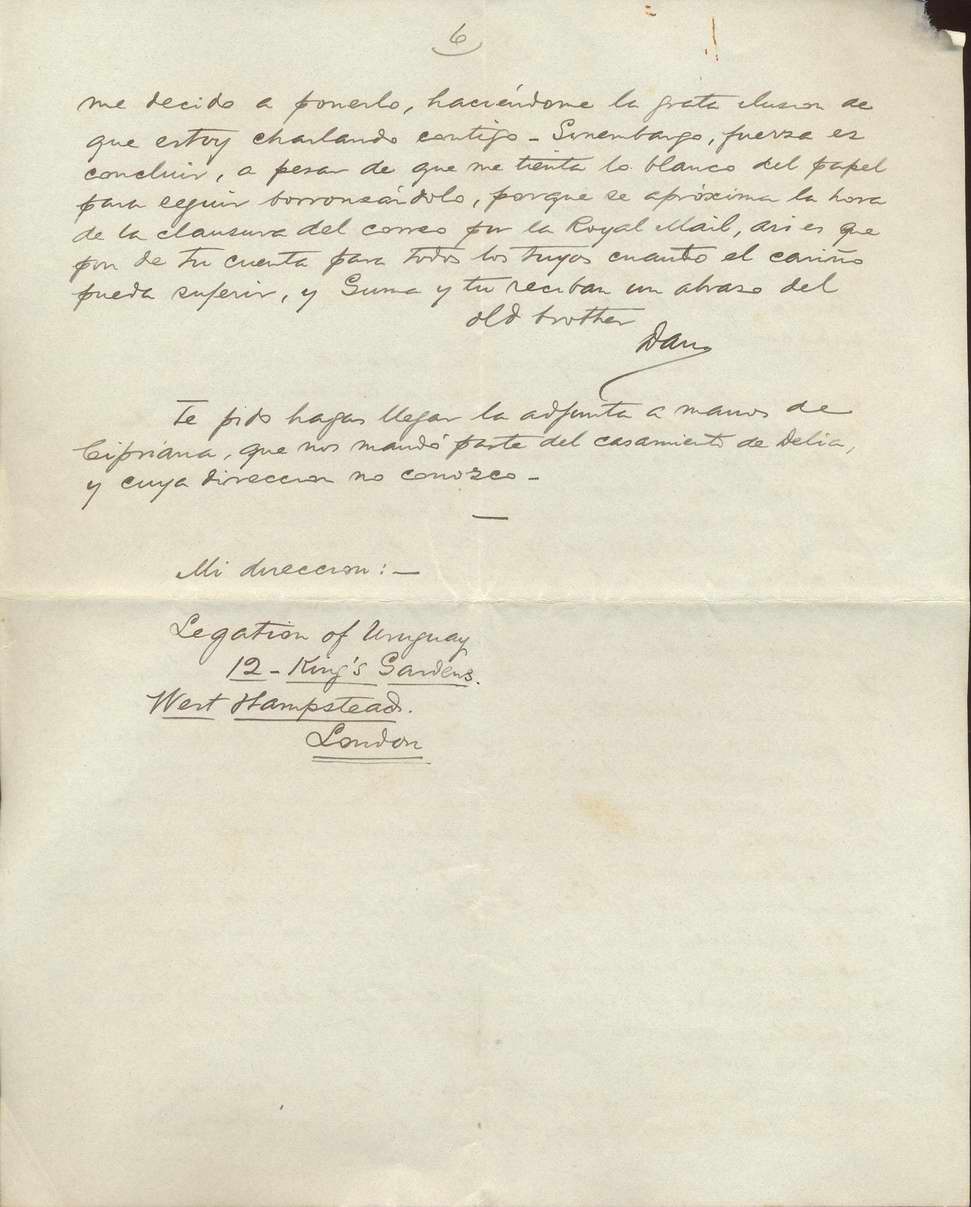 6
me decido a ponerlo, haciéndome la grata ilusion de
que estoy charlando contigo - Sinembargo, fuerza es
concluir, a pesar de que me tienta lo blanco del papel
para seguir borroneándolo, porque se apróxima la hora
de la clausura del correo por la Royal Mail, asi es que
pon de tu cuenta para todos los tuyos cuanto el cariño
pueda sujerir, y Guma y tu reciban un abraso del
old brother
Te pido hagas llegar la adjunta a manos de
Cipriana, que nos mandó parte del casamiento de Delia,
y cuya direccion no conozco -
Mi direccion: -
Legation of Uruguay
12 - King's Gardens.
West Hampstead.
London